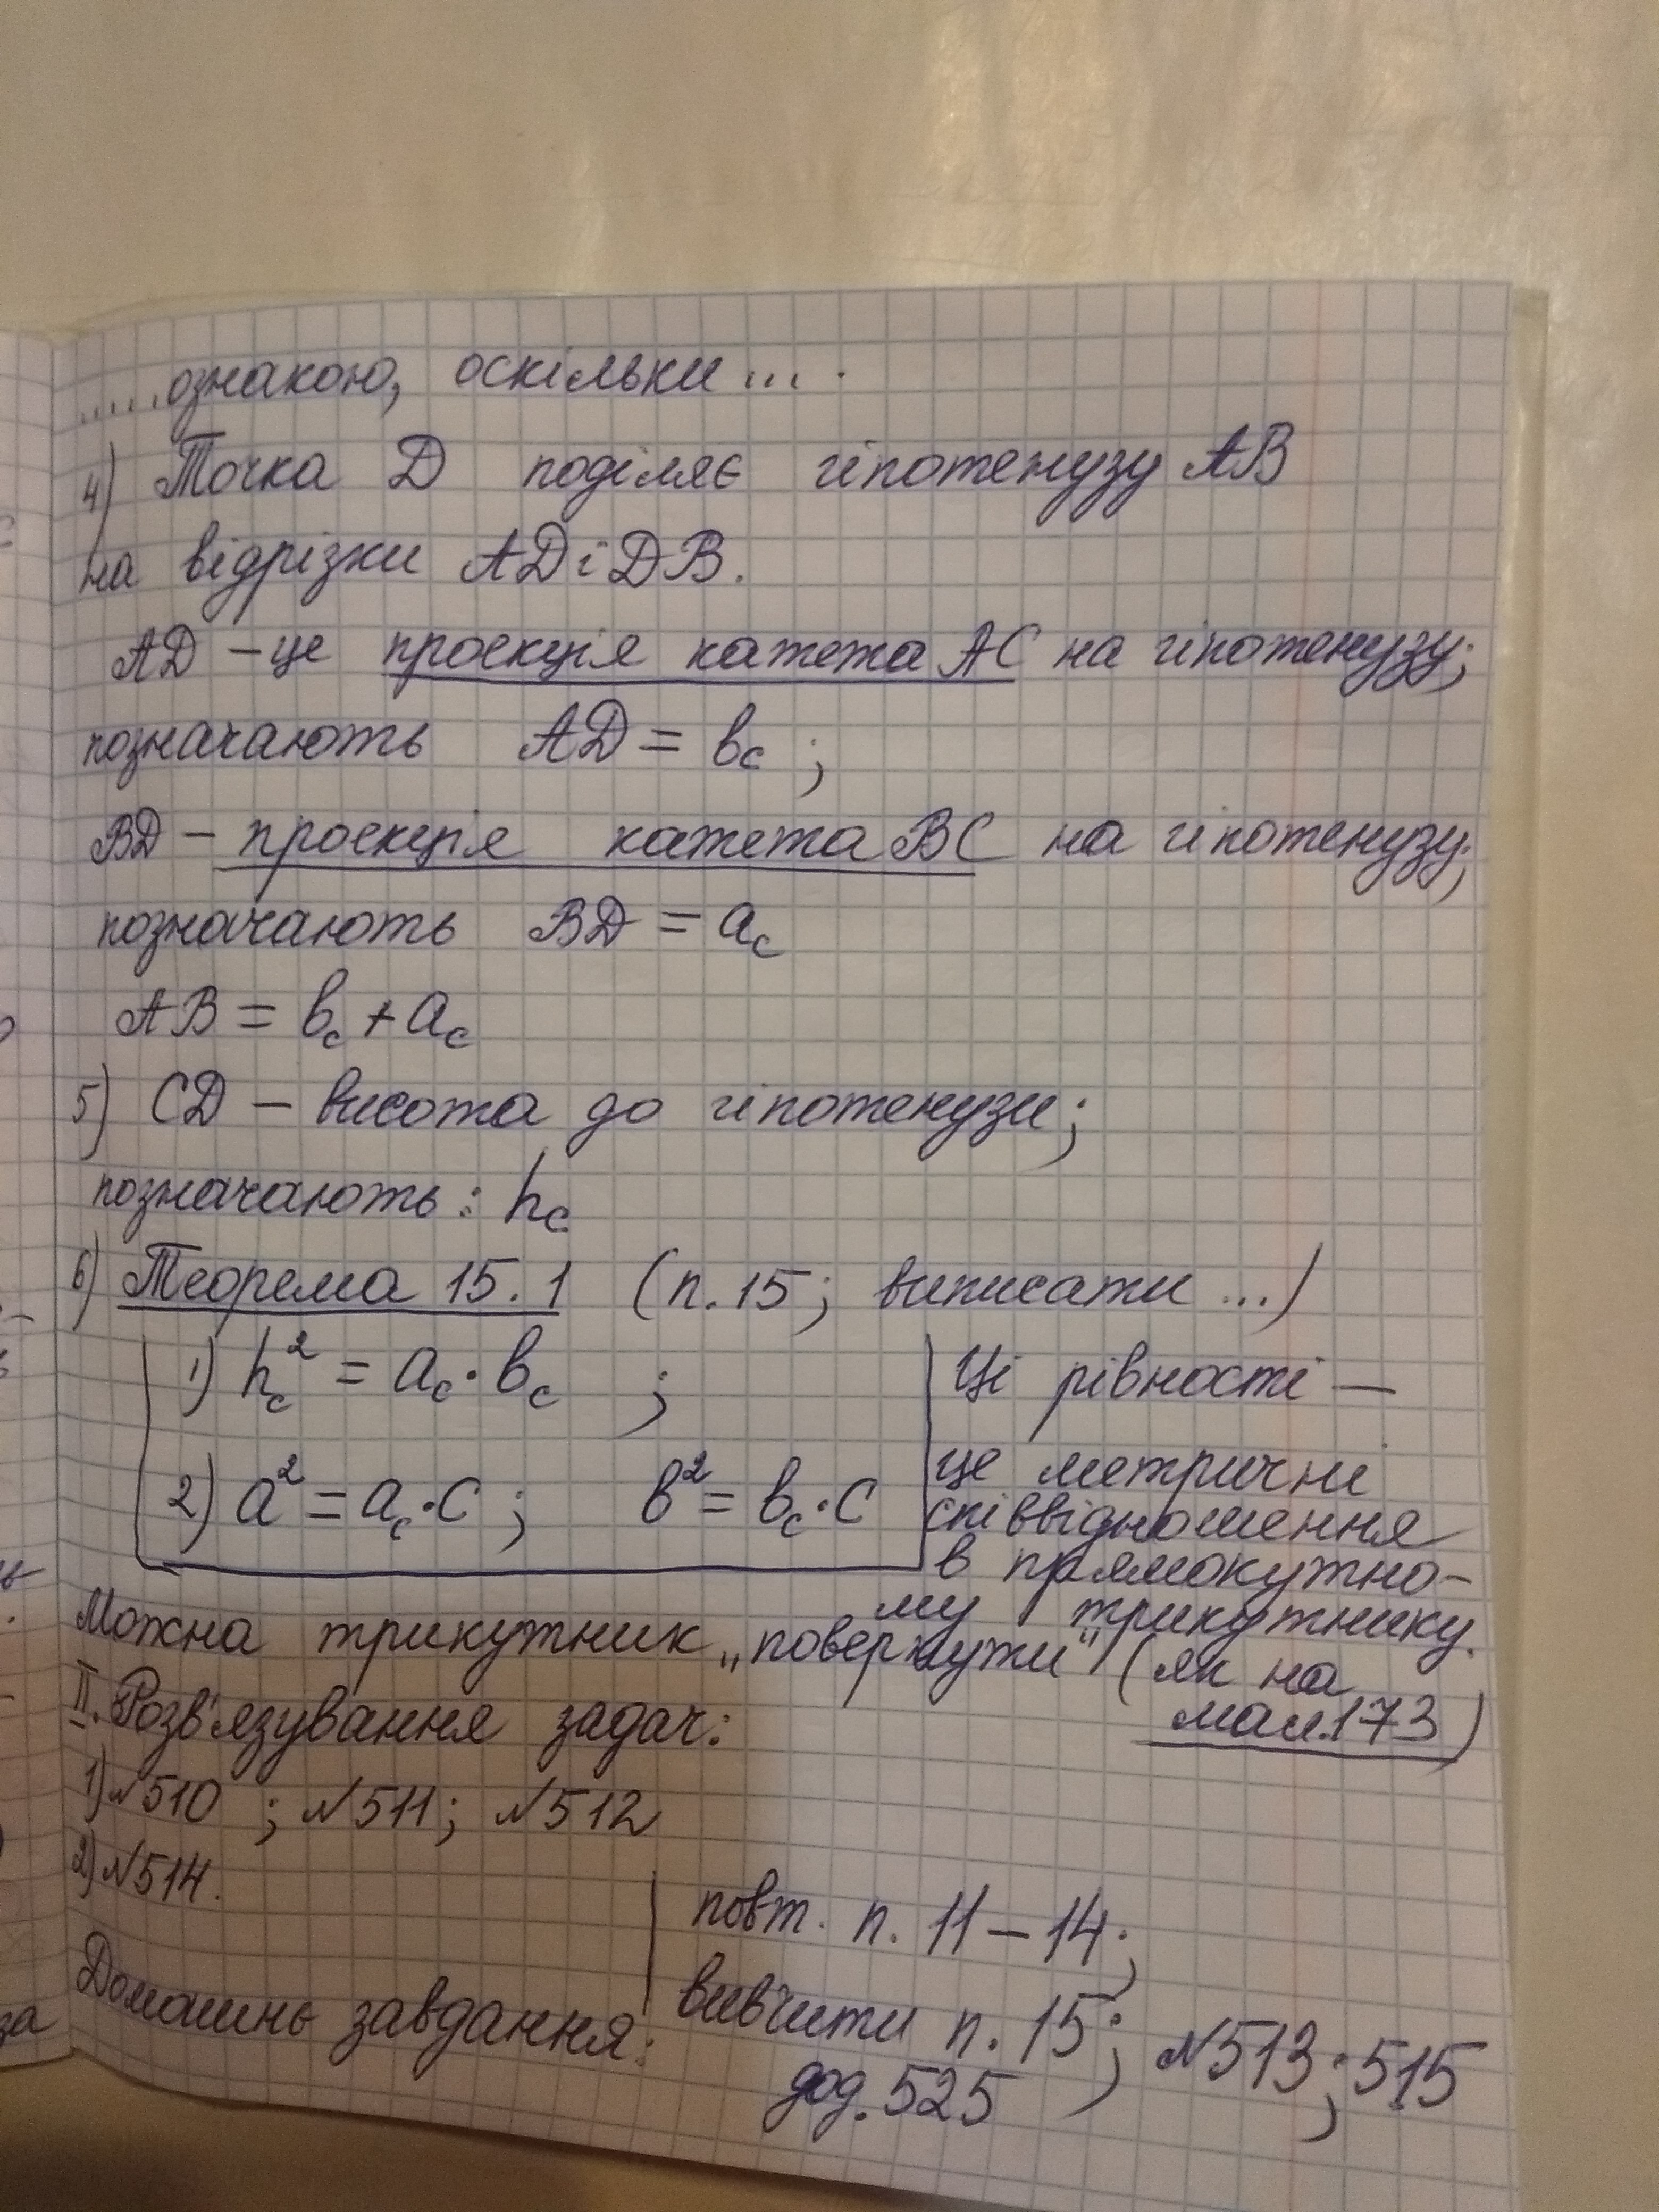 .....ознакою, оскільки ... .
4) Точка D поділяє гіпотенузу AB
на відрізки AD і DB.
AD – це проєкція катета AC на гіпотенузу;
позначають AD = bc ;
BD – проєкція катета BC на гіпотенузу;
позначають BD = ac
AB = bc + ac
5) CD – висота до гіпотенузи;
позначають : hc
6) Теорема 15.1 (п.15; виписати ...)
1) hc² = ac · bc ;
2) a² = ac · c ; b² = bc · c
Ці рівності –
це метричні
співвідношення
в прямокутно-
му трикутнику.
Можна трикутник „повернути" (як на
мал.173)
II. Розв'язування задач:
1) №510 ; №511; №512
2) №514.
Домашнє завдання:
повт. п. 11 – 14;
вивчити п. 15; №513; 515
дод. 525